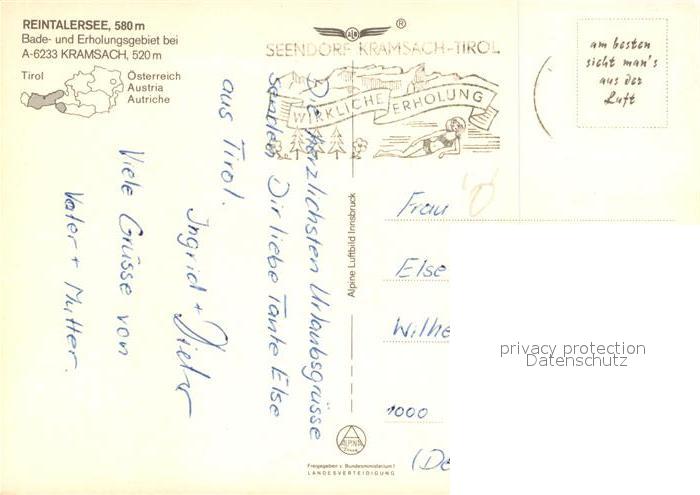 REINTALERSEE, 580 m
Bade- und Erholungsgebiet bei
A-6233 KRAMSACH, 520 m
Tirol
Österreich
Austria
Autriche
®
SEENDORF KRAMSACH-TIROL
WIRKLICHE ERHOLUNG
am besten
sieht man's
aus der
Luft
Die herzlichsten Urlaubsgrüsse
senden Dir liebe Tante Else
aus Tirol.
Ingrid + Dieter
Viele Grüsse von
Vater + Mutter.
Alpine Luftbild Innsbruck
ALPINE
Freigegeben v. Bundesministerium f.
LANDESVERTEIDIGUNG
Frau
Else
Wilhe
1000
(De
privacy protection
Datenschutz